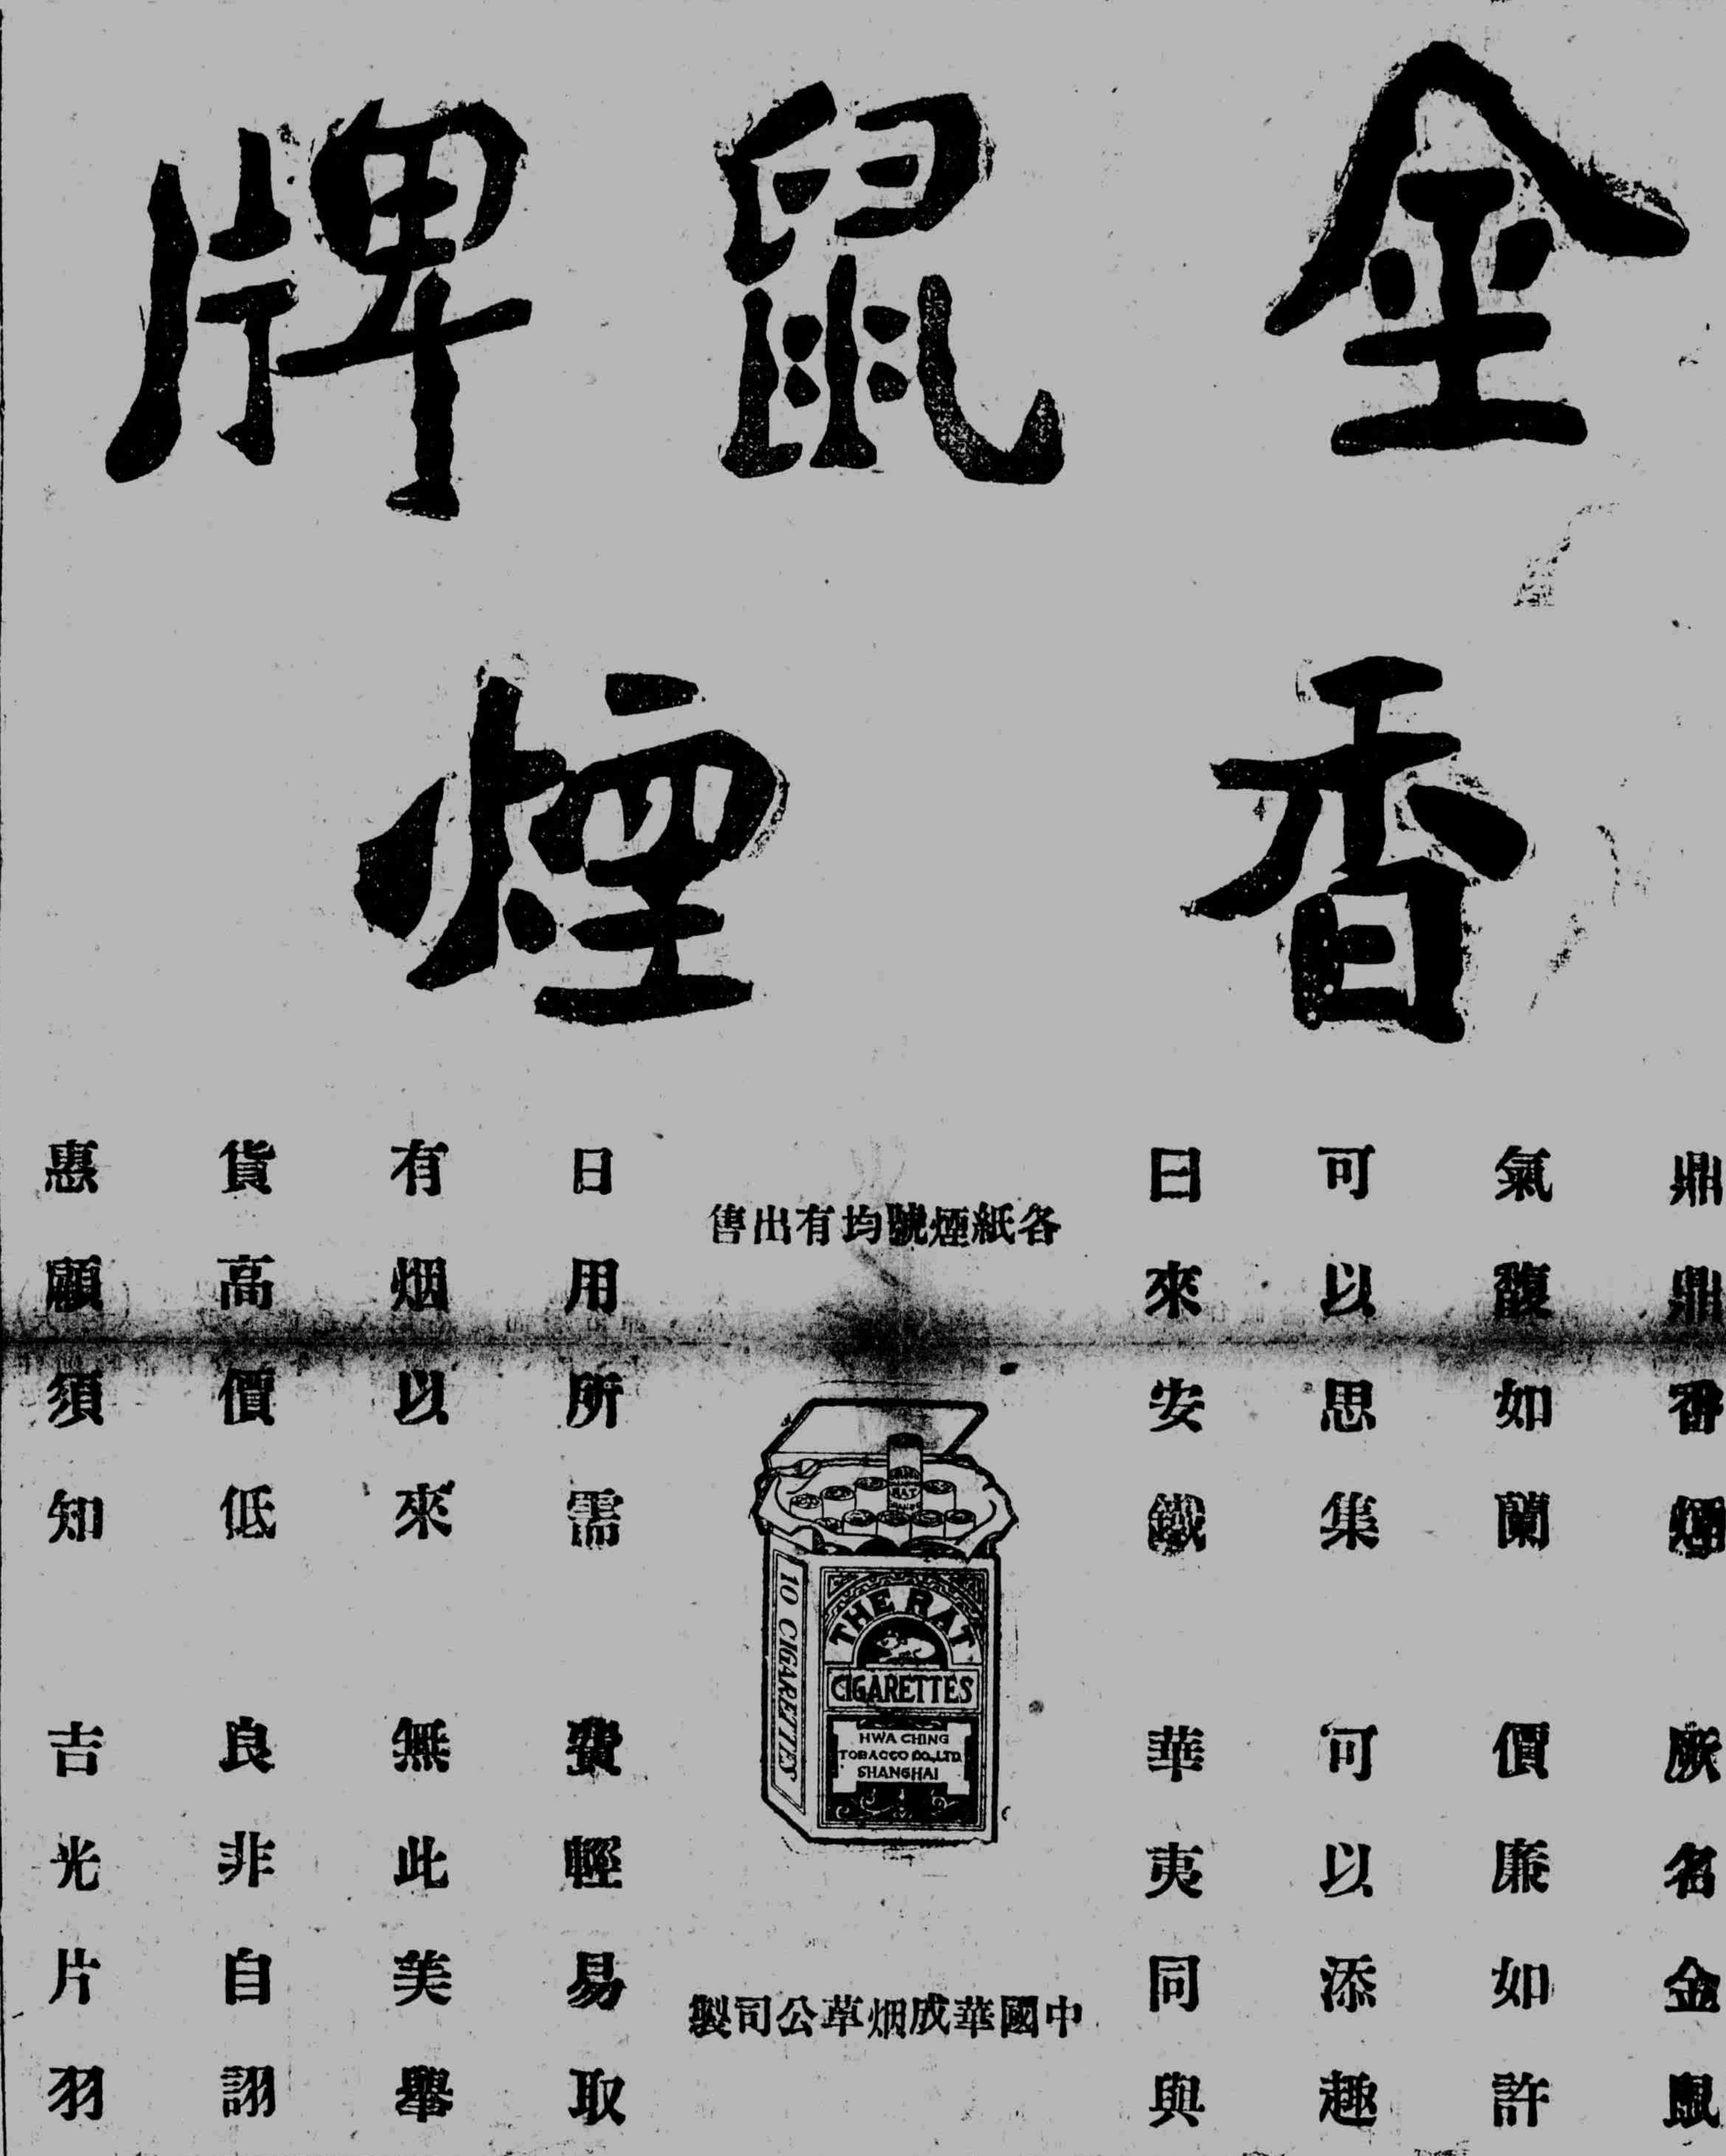 金鼠牌
香煙
鼎鼎香煙 厥名金鼠
氣馥如蘭 價廉如許
可以思集 可以添趣
日來安鐵 華夷同與
各紙煙號均有出售
THE RAT
CIGARETTES
HWA CHING
TOBACCO CO., LTD.
SHANGHAI
10 CIGARETTES
中國華成烟草公司製
日用所需 費輕易取
有烟以來 無此美舉
貨高價低 良非自詡
惠顧須知 吉光片羽